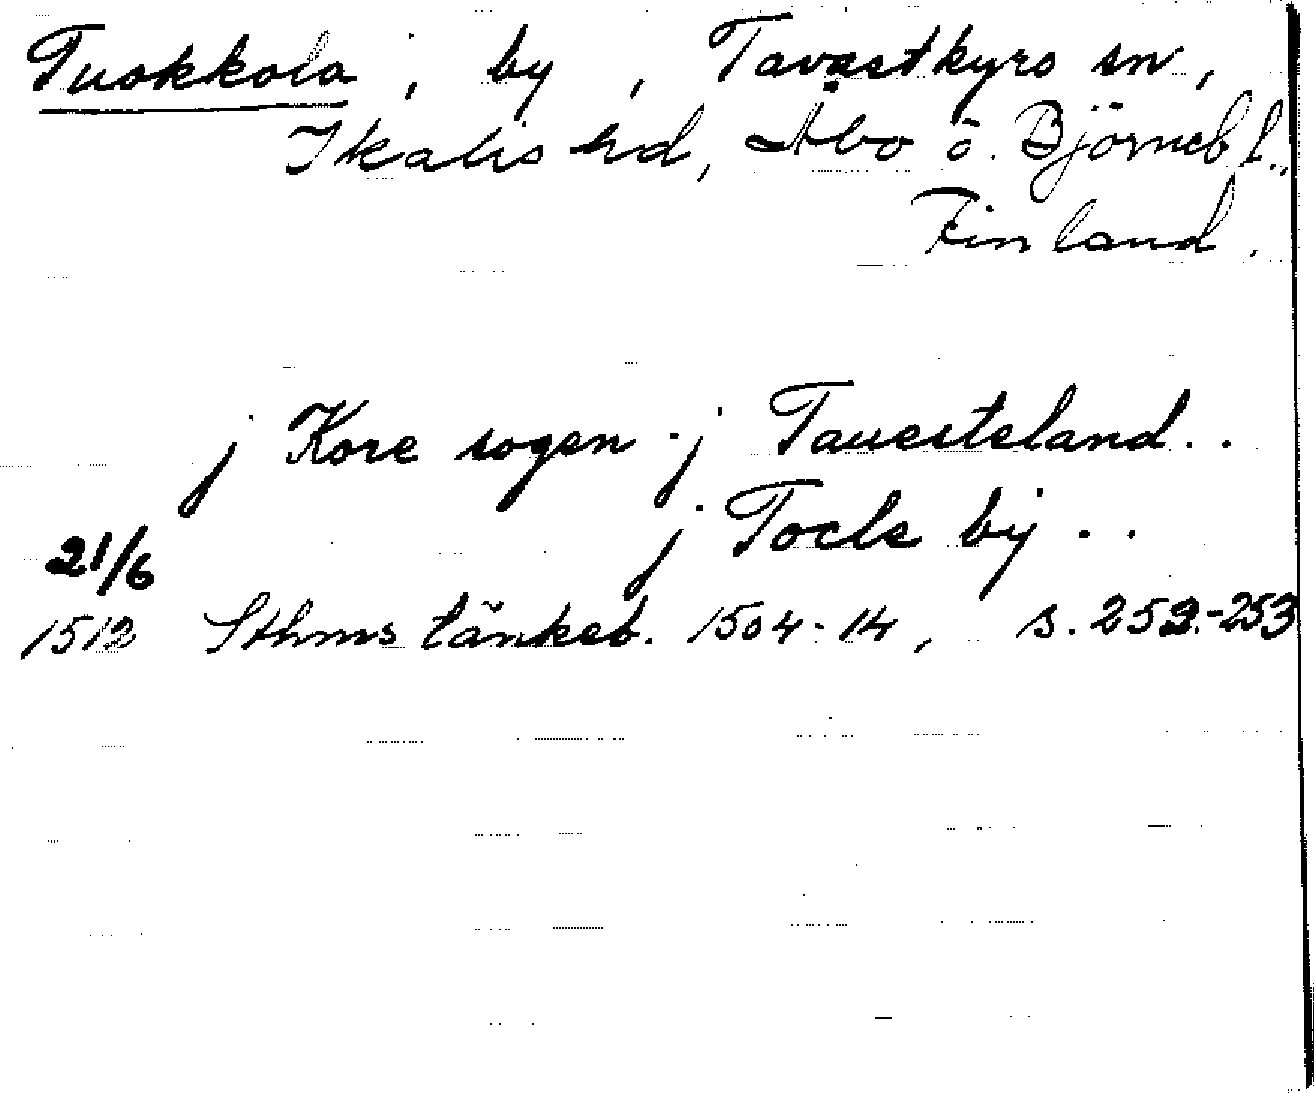 Tuokkola, by, Tavastkyro sn,
Ikalis hd, Åbo o. Björneb l.,
Finland.
j Kore sogen j Tauesteland..
j Tocls by ..
21/6
1512 Sthms tänkeb. 1504-14, s. 252-253